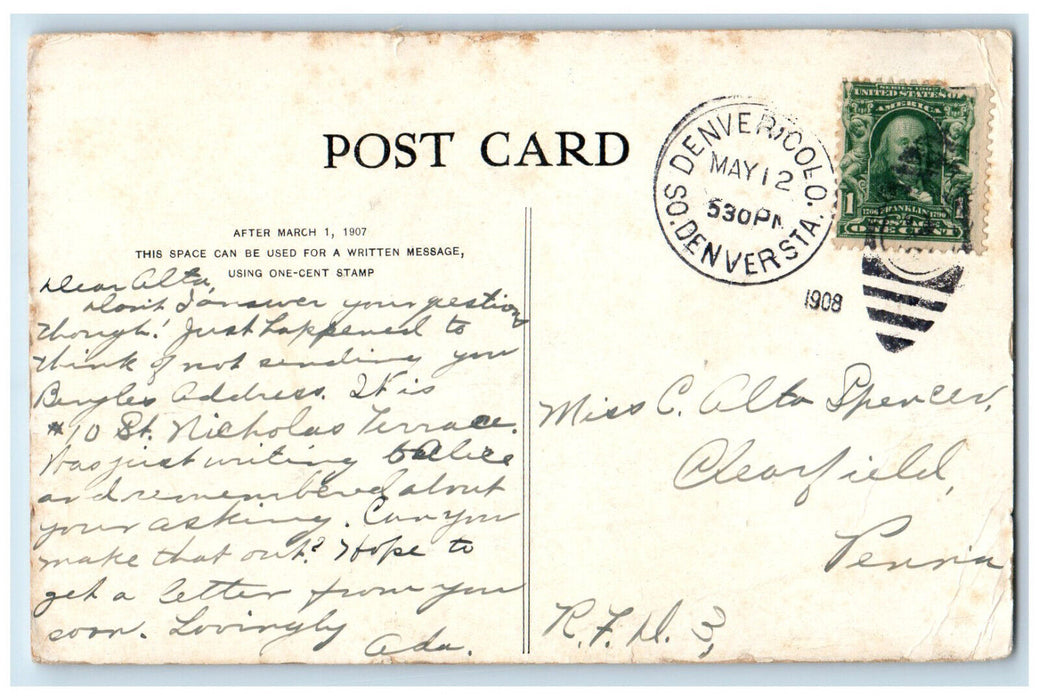 POST CARD
AFTER MARCH 1, 1907
THIS SPACE CAN BE USED FOR A WRITTEN MESSAGE,
USING ONE-CENT STAMP
Dear Alta,
Don't I answer your question
though! Just happened to
think of not sending you
Address. It is
#70 St. Nicholas Terrace.
Was just writing to Alice
and remembered about
your asking. Can you
make that out? Hope to
get a letter from you
soon. Lovingly
Ada.
DENVER, COLO.
MAY 12
530 PM
SO. DENVER STA.
1908
SERIES 1902
UNITED STATES OF
AMERICA
1706 FRANKLIN 1790
1
ONE CENT
Miss C. Alta Spencer,
Clearfield,
Penna
R.F.D. 3,